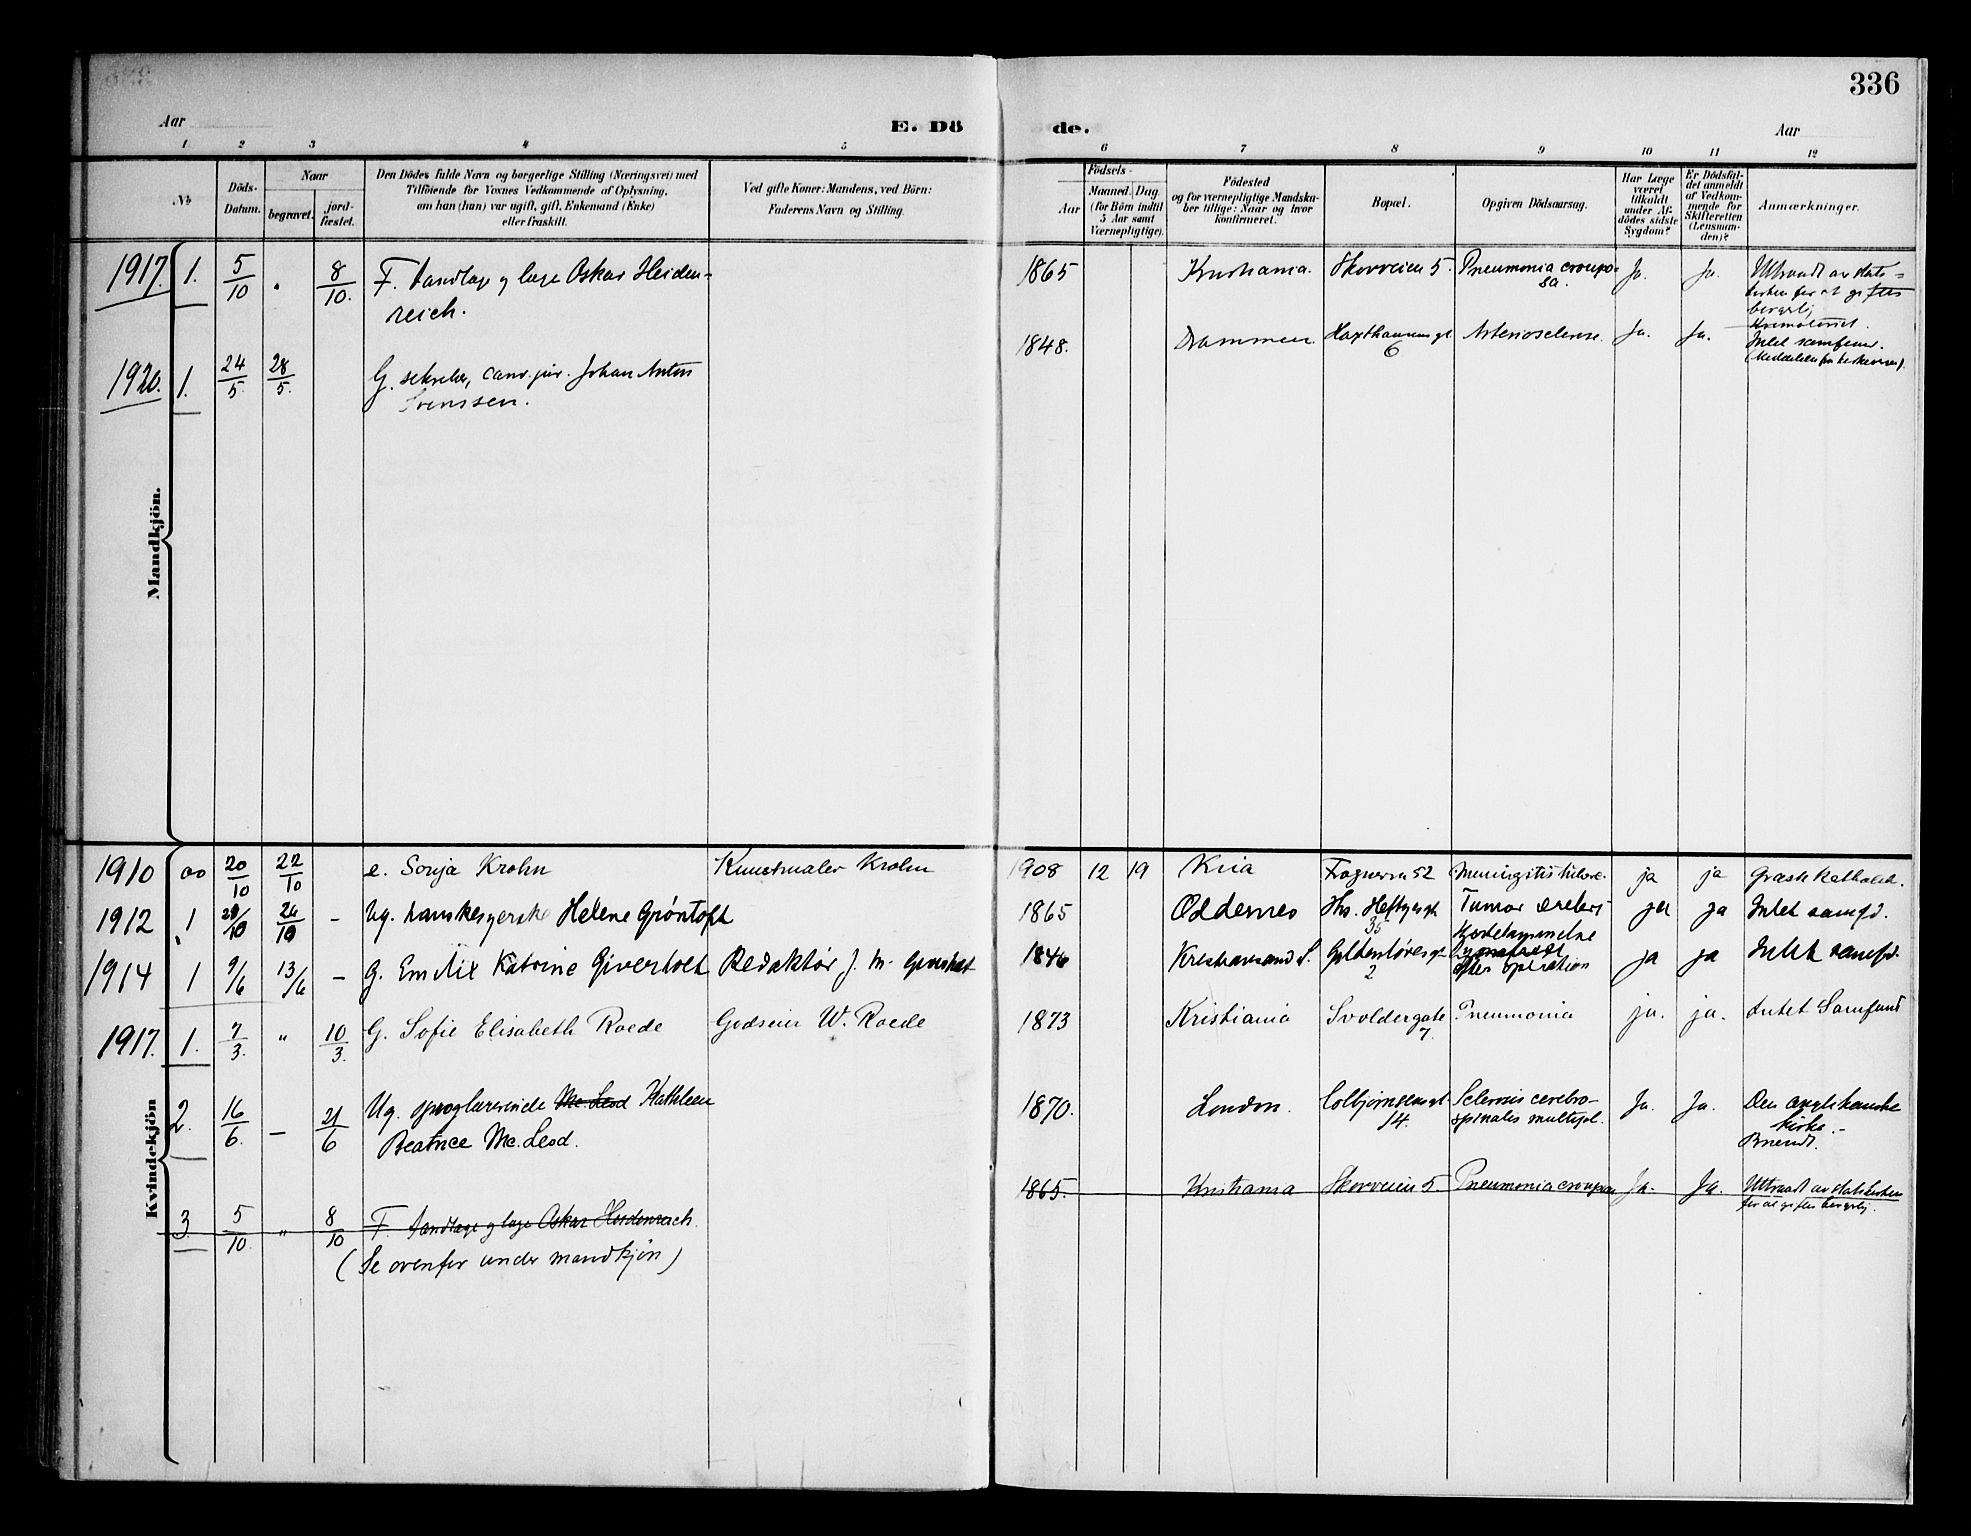 336
Aar
E. Dö
de.
Aar
1 2 3 4 5 6 7 8 9 10 11 12
No
Döds-
Datum.
Naar
begravet.
jord-
fæstet.
Den Dödes fulde Navn og borgerlige Stilling (Næringsvei) med
Tilföiende for Voxnes Vedkommende af Oplysning,
om han (hun) var ugift, gift, Enkemand (Enke)
eller fraskilt.
Ved gifte Koner: Mandens, ved Börn:
Faderens Navn og Stilling.
Födsels-
Aar
Maaned. Dag.
(for Börn indtil
5 Aar samt
Værnepligtige).
Födested
og for værnepligtige Mandska-
ber tillige: Naar og hvor
konfirmeret.
Bopæl.
Opgiven Dödsaarsag.
Har Læge
været
tilkaldt
under Af-
dödes sidste
Sygdom?
Er Dödsfal-
det anmeldt
af Vedkom-
mende for
Skifteretten
(Lensman-
den)?
Anmærkninger.
Mandkjön.
1917. 1. 5/10 " 8/10. F. Tandlæge og læge Oskar Heiden-
reich.
1865 Kristiania. Skovveien 5. Pneumonia croupo-
sa. Ja. Ja. Uttraadt av stats-
kirken for at giftes
borgerlig
Krematoriet.
1920. 1. 24/5. 28/5. G. sekretær, cand. jur. Johan Anton
Svenssen.
1848. Drammen. Haxthausens gt.
6 Arteriosclerose. Ja. Ja. Intet samfund.
Kvindekjön
1910 20/10 22/10 e. Sonja Krohn Kunstmaler Krohn
1908 12 19 Kria Fragnervn 52 Meningitis tuberc. ja ja Græsk katholsk.
1912 1 24/10 - Ug. hanskesyerske Helene Grøntoft
1865 Oddernes Ths. Heftyesgt.
35 Tumor cerebri ja ja Intet samfd.
1914 1 9/6 13/6 - G. Emilie Katrine Giverholt Redaktør J. M. Giverholt
1846 Kristiansand S. Gyldenløves gt.
2
efter operation ja ja Intet samfd.
1917. 1. 7/3. " 10/3. G. Sofie Elisabeth Roede Godseier W. Roede
1873 Kristiania Svoldergate
7. Pneumonia ja. ja. Intet Samfund
2. 16/6. - 21/6 Ug. sproglærerinde Mc. Leod Kathleen
Beatrice Mc. Leod.
1870. London. Colbjørnsens gt.
14. Sclerosis cerebro-
spinalis multipl. Ja. Ja. Den anglikanske
kirke.-
Brændt.
3. 5/10. " 8/10 F. Tandlæge og læge Oskar Heidenreich.
(Se ovenfor under mandkjøn)
1865. Kristiania Skovveien 5. Pneumonia crouposa Ja. Ja. Uttraadt av statskirken
for at giftes borgerlig.